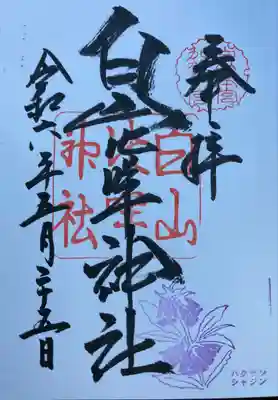 奉拝
白山
神社
令和六年五月二十五日
白山
神社
ハクサン
シャジン